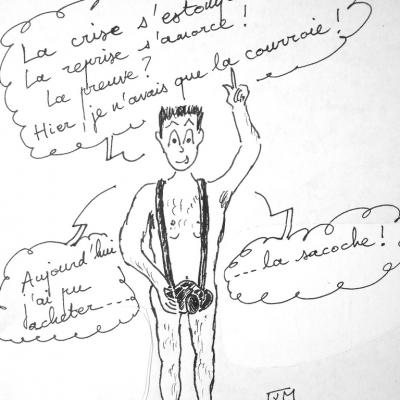 La crise s'estompe
La reprise s'amorce !
La preuve ?
Hier, je n'avais que la courroie !
Aujourd'hui
j'ai pu
acheter ----
---- la sacoche !